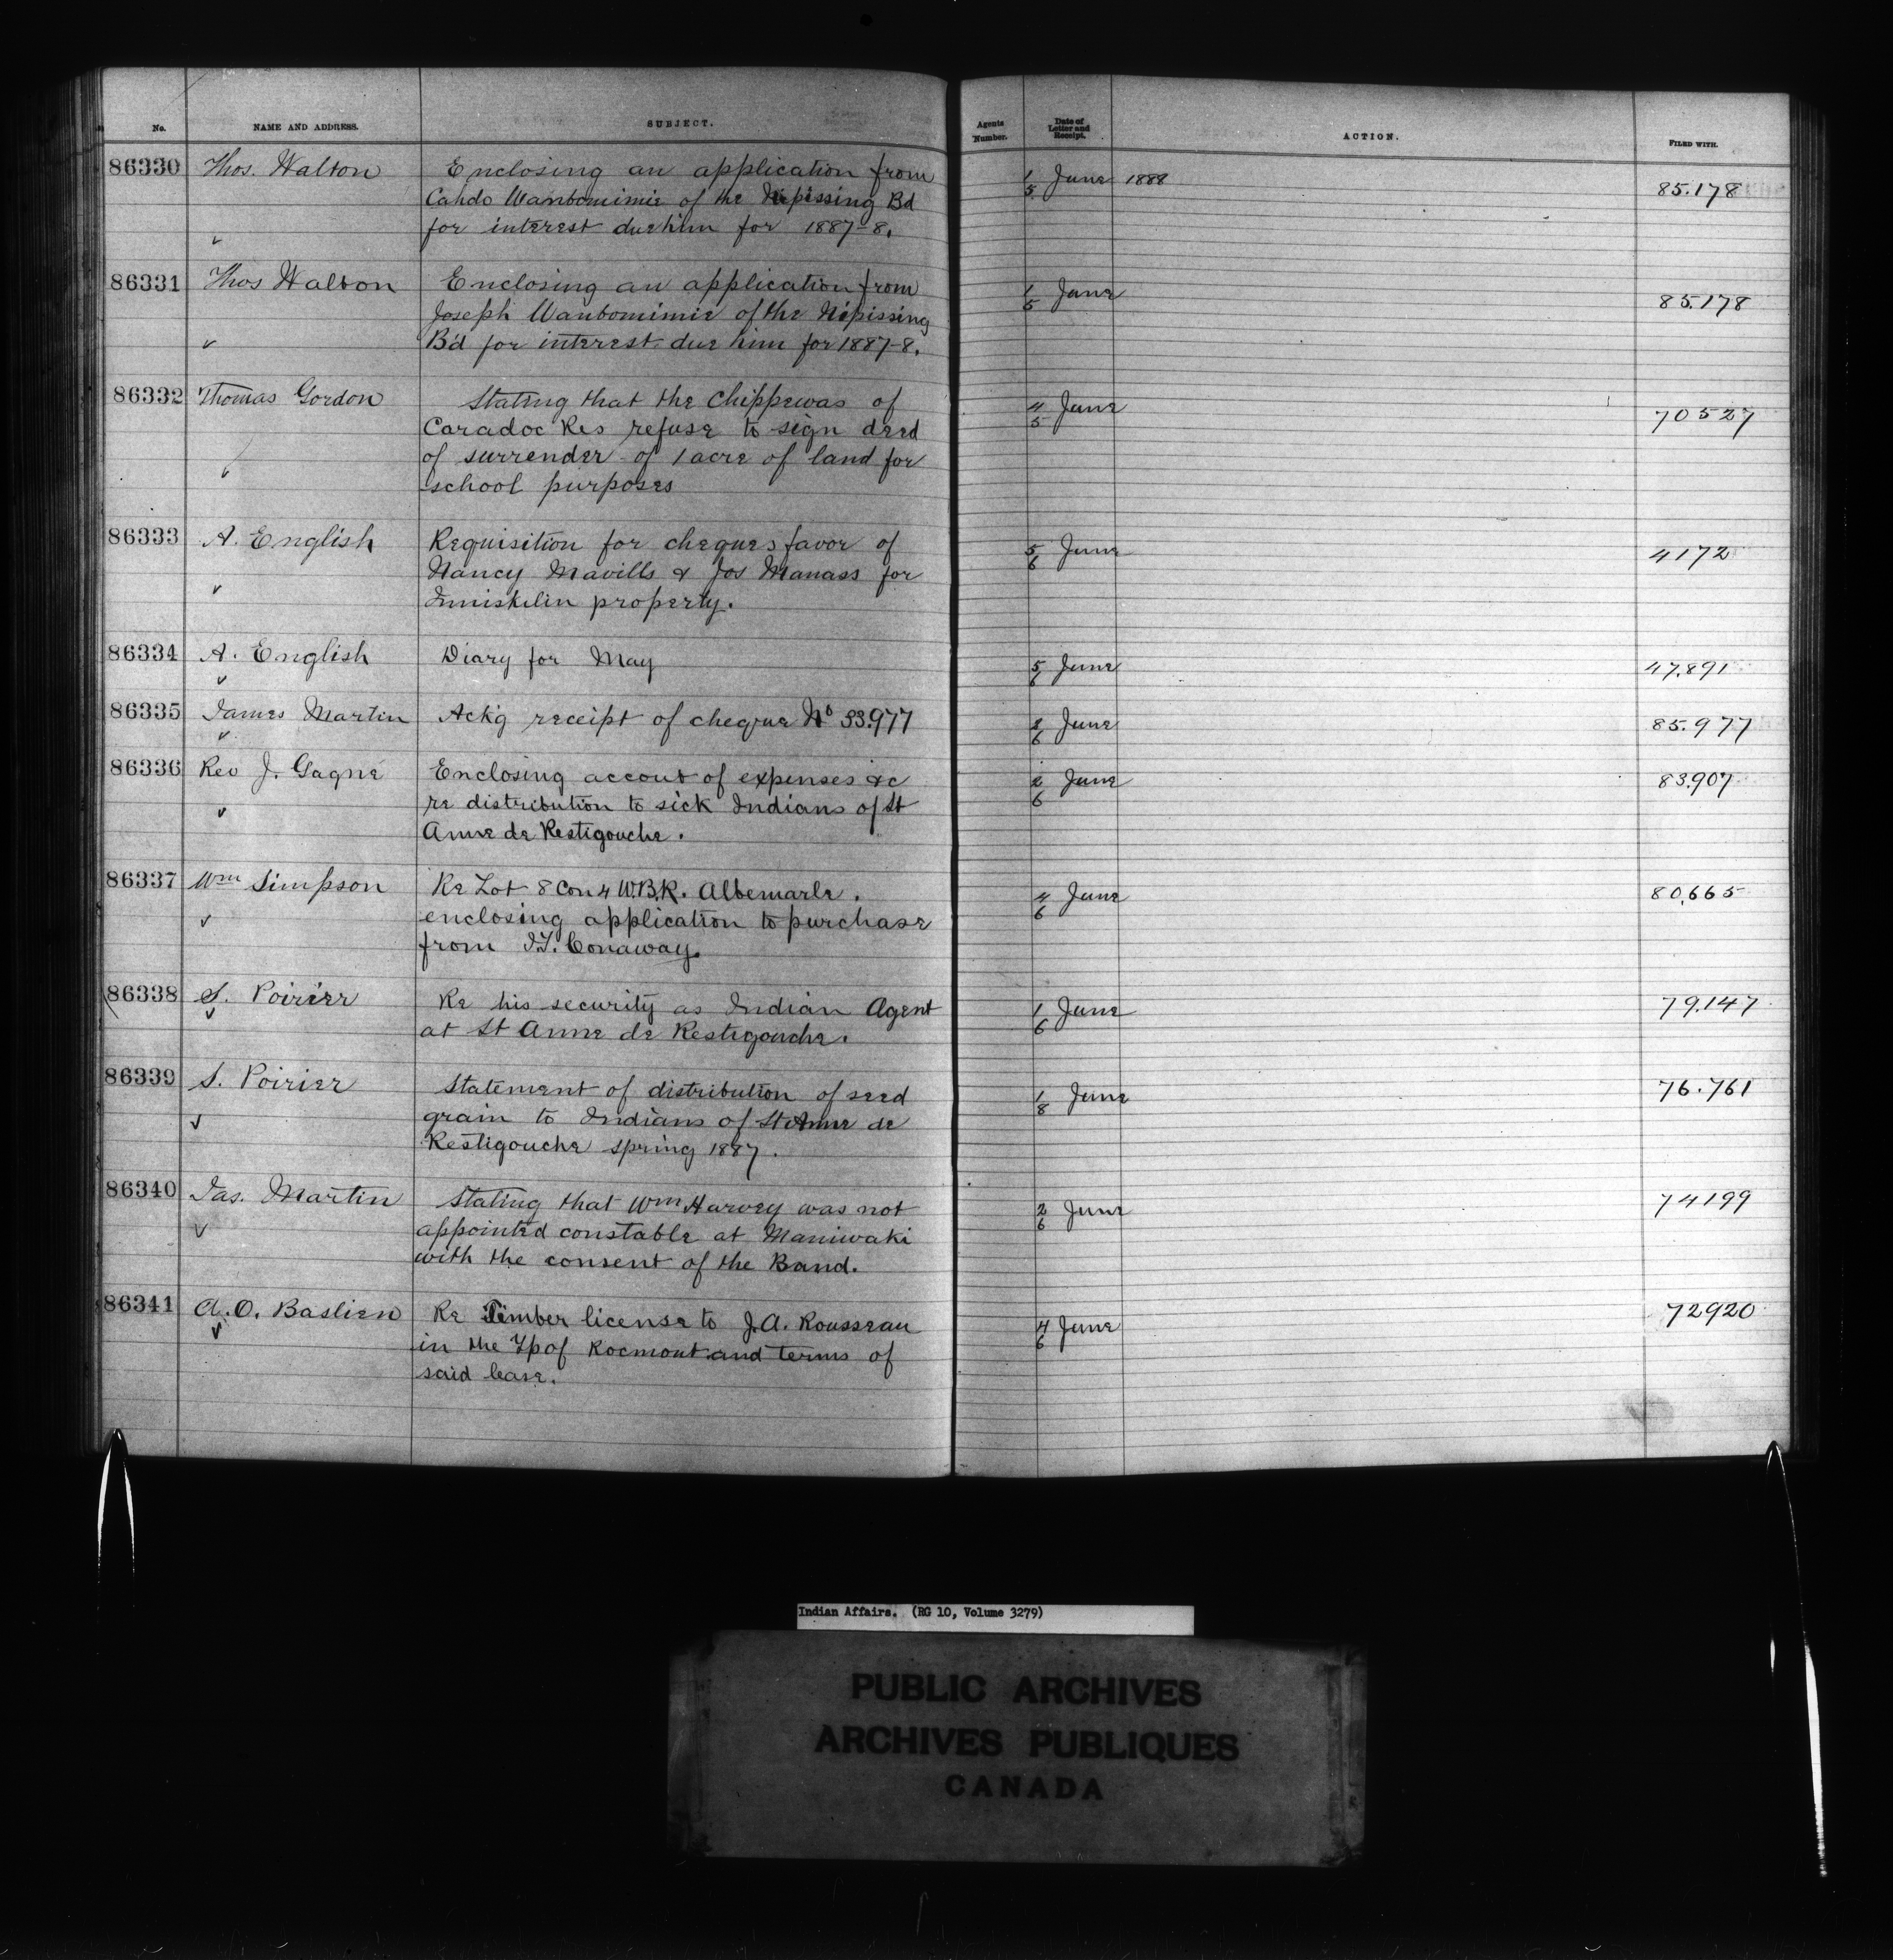 No. NAME AND ADDRESS. SUBJECT. Agents Number. Date of Letter and Receipt. ACTION. FILED WITH.
86330 Thos. Walton Enclosing an application from 1/5 June 1888 85.178
Cahdo Wanbomimie of the Nipissing Bd
for interest due him for 1887-8.
86331 Thos Walton Enclosing an application from 1/5 June 85.178
Joseph Wanbomimie of the Nipissing
B'd for interest due him for 1887-8.
86332 Thomas Gordon Stating that the Chippewas of 4/5 June 70527
Caradoc Res refuse to sign deed
of surrender of 1 acre of land for
school purposes
86333 A. English Requisition for cheques favor of 5/6 June 4172
Nancy Mavills & Jos Manass for
Inniskilin property.
86334 A. English Diary for May 5/6 June 47.891
86335 James Martin Ack'g receipt of cheque No 33.977 2/6 June 85.977
86336 Rev J. Gagné Enclosing accout of expenses &c 2/6 June 83.907
re distribution to sick Indians of St
Anne de Restigouche.
86337 Wm Simpson Re Lot 8 Con 4 W.B.R. Albemarle. 4/6 June 80,665
enclosing application to purchase
from Conaway.
86338 S. Poirier Re his security as Indian Agent 1/6 June 79.147
at St Anne de Restigouche.
86339 S. Poirier Statement of distribution of seed 1/8 June 76.761
grain to Indians of St Anne de
Restigouche spring 1887.
86340 Jas. Martin Stating that Wm Harvey was not 2/6 June 74199
appointed constable at Maniwaki
with the consent of the Band.
86341 A. O. Bastien Re Timber license to J.A. Rousseau 4/6 June 72920
in the Tp of Rocmont and terms of
said lease.
Indian Affairs. (RG 10, Volume 3279)
PUBLIC ARCHIVES
ARCHIVES PUBLIQUES
CANADA